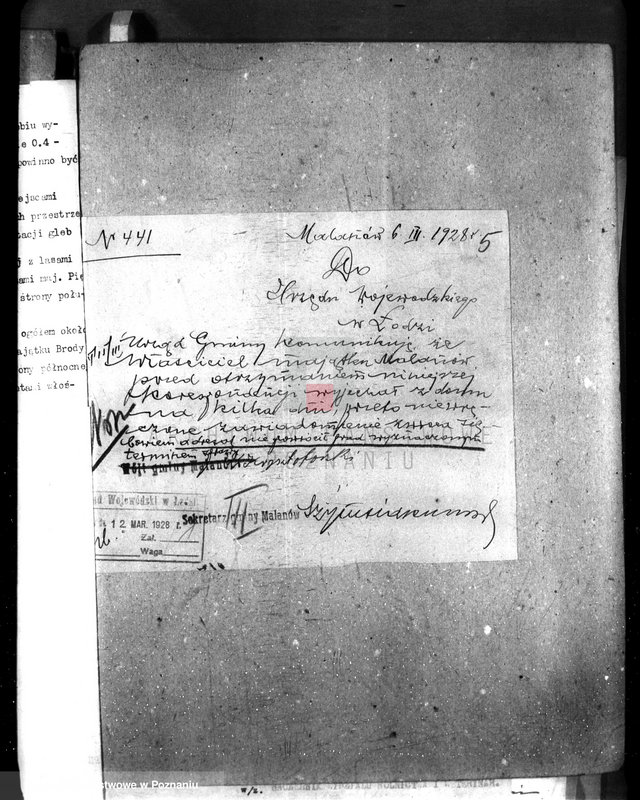 obiu wy-
ie 0.4 -
powinno być
ejscami
ch przestrze
tacji gleb
j z lasami
ami maj. Pię
strony połu-
ogółem około
ajątku Brody
ony północnej
otami włoś-
№ 441
Malanów 6 III. 1928 r.
5
Do
Urzędu Wojewódzkiego
w Łodzi
Urząd Gminy komunikuje, że
właściciel majątku Malanów
przed otrzymaniem niniejszej
korespondencji wyjechał z domu
na kilka dni, przeto niewrę-
czone zawiadomienie zwraca się
bowiem adresat nie powrócił przed wyznaczonym
terminem
Wójt gminy Malanów
POZNANIU
ąd Wojewódzki w Łodzi
12 MAR. 1928 r.
Zał.
Waga
II
Sekretarz gminy Malanów
stwowe w Poznaniu
w/z.